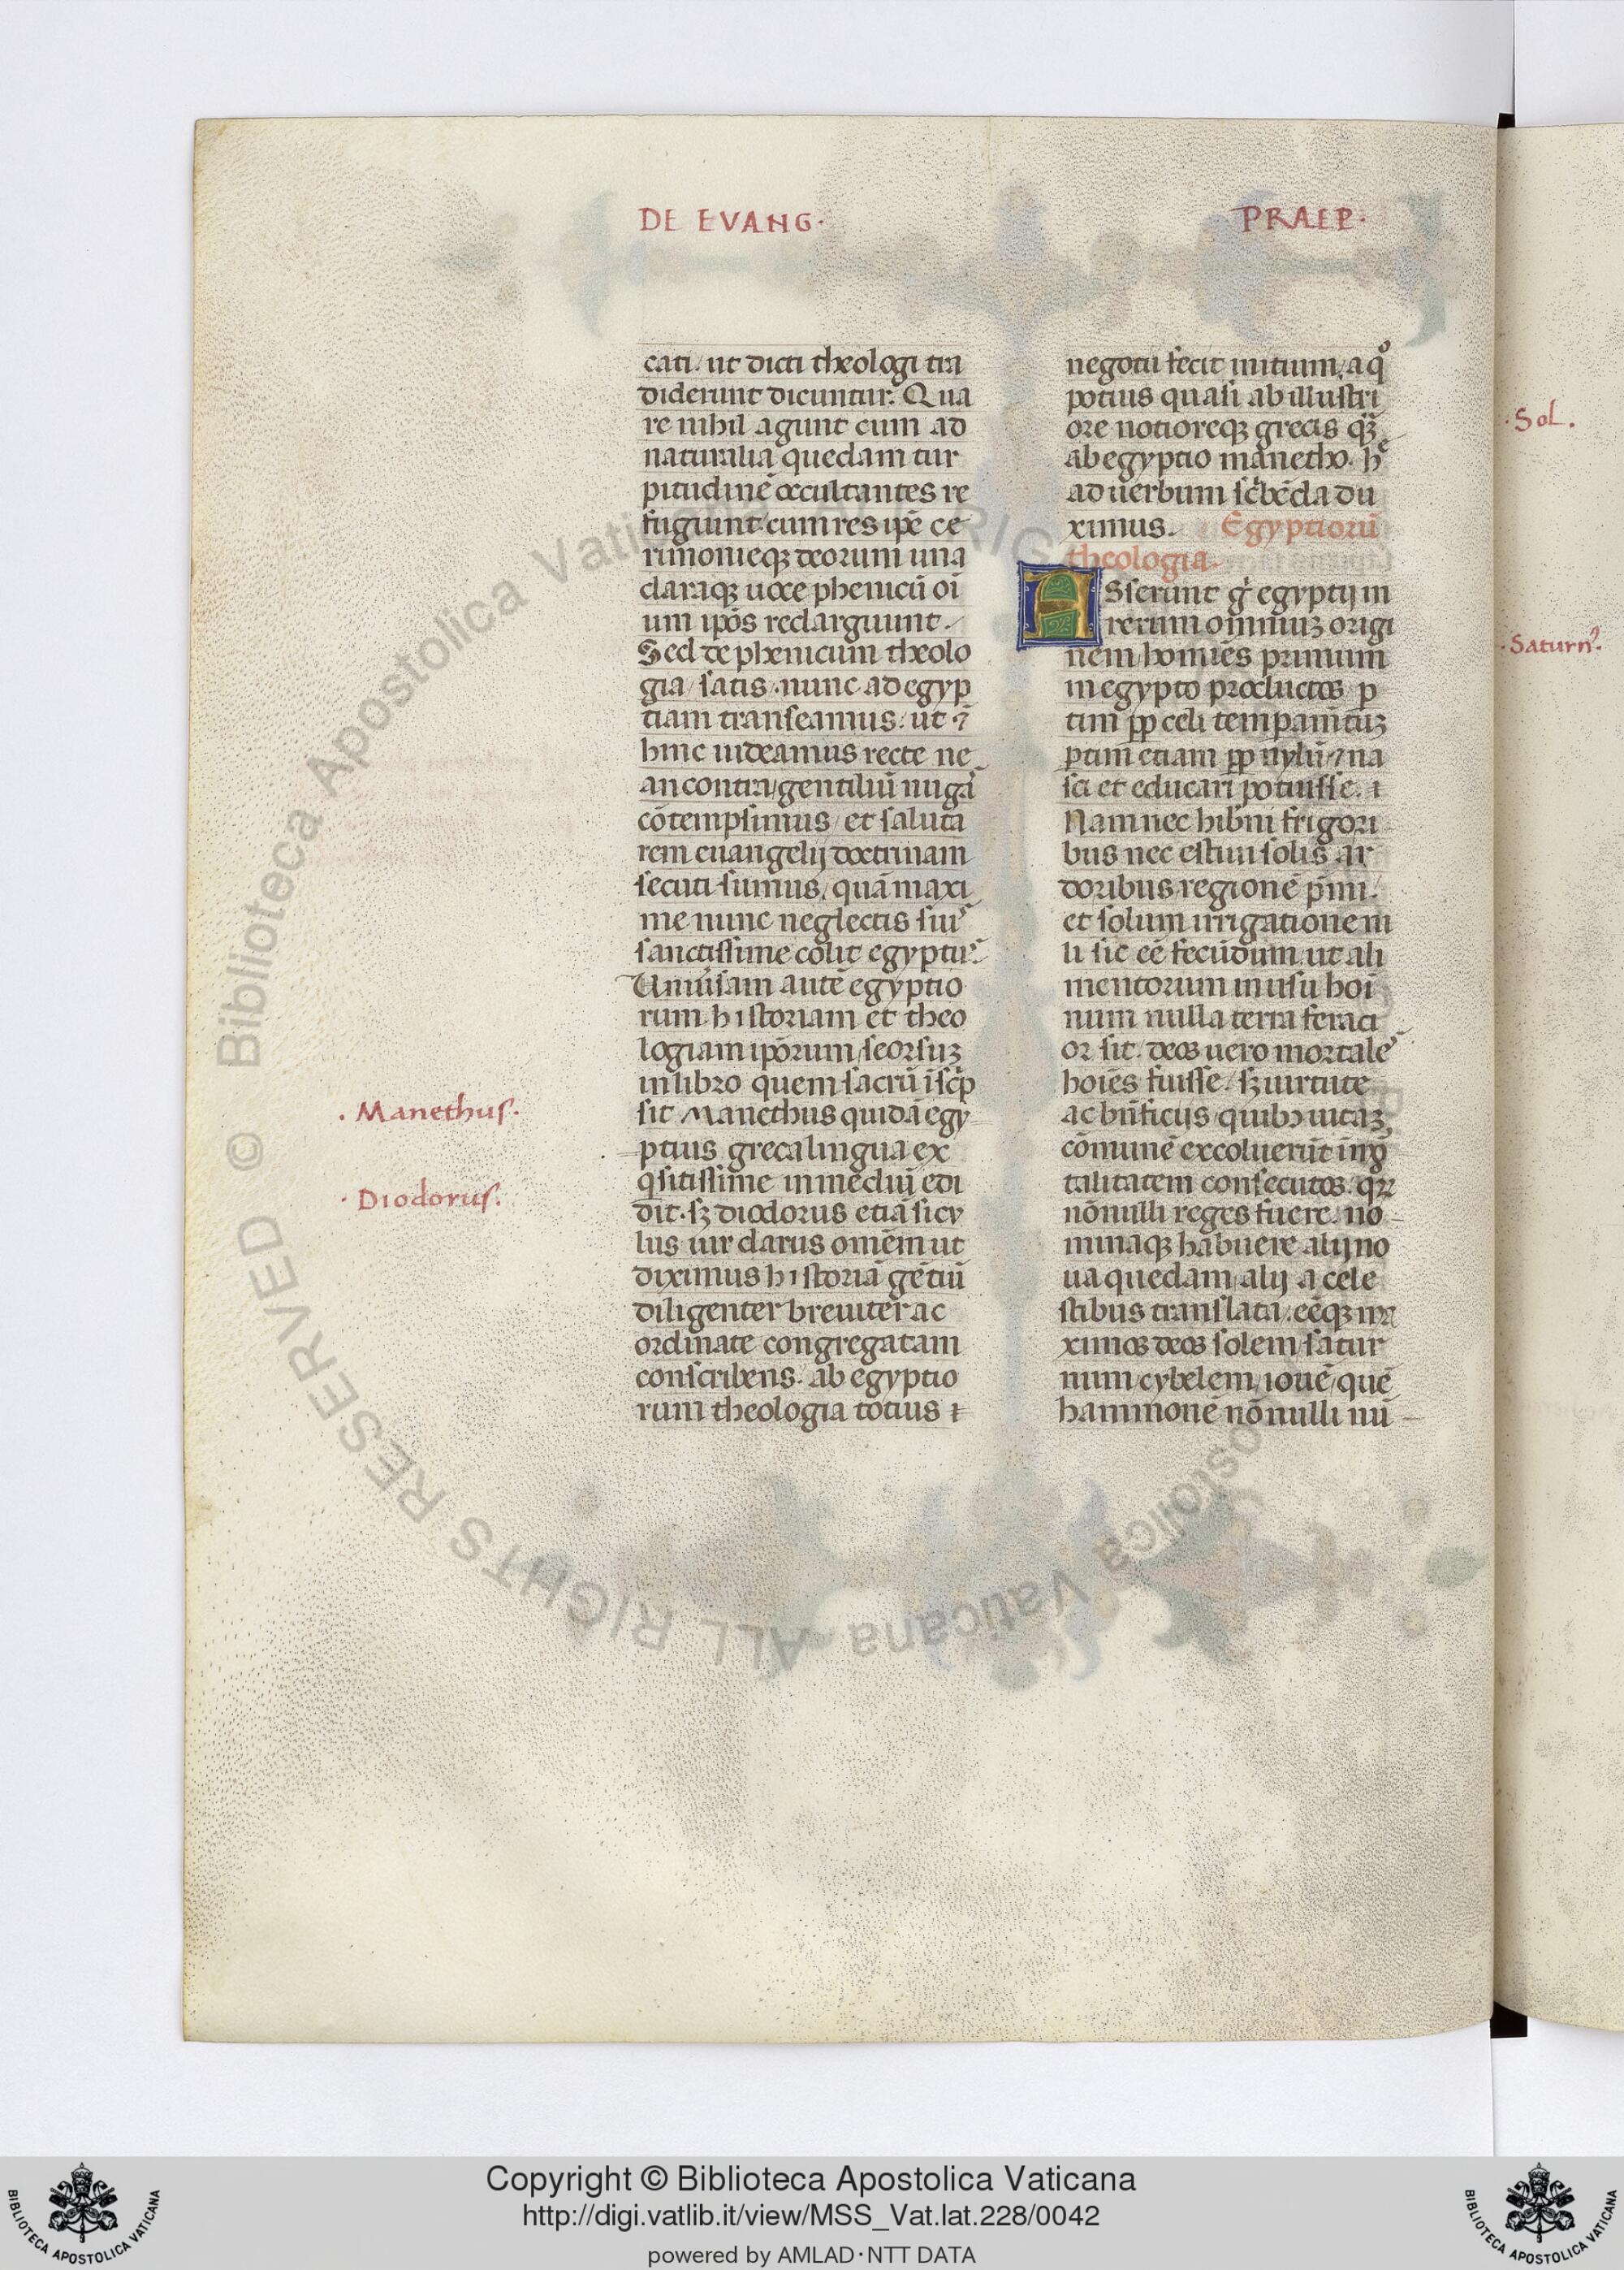 DE EVANG·
PRAEP·
cati/ ut dicti theologi tra
diderunt dicuntur. Qua
re nihil agunt cum ad
naturalia quedam tur
pitudinē occultantes re
fugiunt cum res ip̄e ce
rimonieqꝫ deorum una
claraqꝫ uoce phenicū oī
um ip̄os redarguunt.
Sed de phenicum theolo
gia/ satis. nunc ad egyp
tiam transeamus/ ut ⁊
hinc uideamus recte ne
an contra/gentiliū nugas
cōtempsimus/ et saluta
rem euangelij doctrinam
secuti sumus/ quā maxi
me nunc neglectis suis
sanctissime colit egyptus.
Vniuersam autē egyptio
rum historiam et theo
logiam ip̄orum/seorsuꝫ
in libro quem sacrū īscp̄
sit Manethus quidā egy
ptius greca lingua ex
qsitissime in mediū edi
dit. sꝫ diodorus etiā sicy
lus uir clarus omēm ut
diximus historiā gētiū
diligenter breuiter ac
ordinate congregatam
conscribens. ab egyptio
rum theologia totius
. Manethus.
· Diodorus.
negotii fecit initium/a qº
potius quasi ab illustri
ore notioreqꝫ grecis qꝫ
ab egyptio manetho. hec
ad uerbum sc̄bēda du
ximus. Egyptiorū
theologia.
ASserunt gͥ egyptij in
rerum omniuꝫ origi
nem/homīes primum
in egypto productos p
tim pp celi temperamētuꝫ
ptim etiam pp nylū/⁊ na
sci et educari potuisse.
Nam nec hib̄ni frigori
bus nec estiui solis ar
doribus regionē p̄mi.
et solum irrigatione ni
li sic eē fecūdum/ut ali
mentorum in usu hoī
num nulla terra feraci
or sit. deos uero mortales
hoīes fuisse/ sꝫ uirtute
ac bn̄ficijs/quibꝰ uitaꝫ
cōmunē excoluerūt īmor
talitatem consecutos. qꝝ
nōnulli reges fuere. no
minaqꝫ habuere alij no
ua quedam/alij a cele
stibus translata. eēqꝫ ma
ximos deos solem/satur
num/cybelem/iouē/quē
hammonē nōnulli nū
· Sol.
· Saturnꝰ.
© Biblioteca Apostolica Vaticana ALL RIGHTS RESERVED
Copyright © Biblioteca Apostolica Vaticana
http://digi.vatlib.it/view/MSS_Vat.lat.228/0042
powered by AMLAD·NTT DATA
BIBLIOTECA APOSTOLICA VATICANA
BIBLIOTECA APOSTOLICA VATICANA